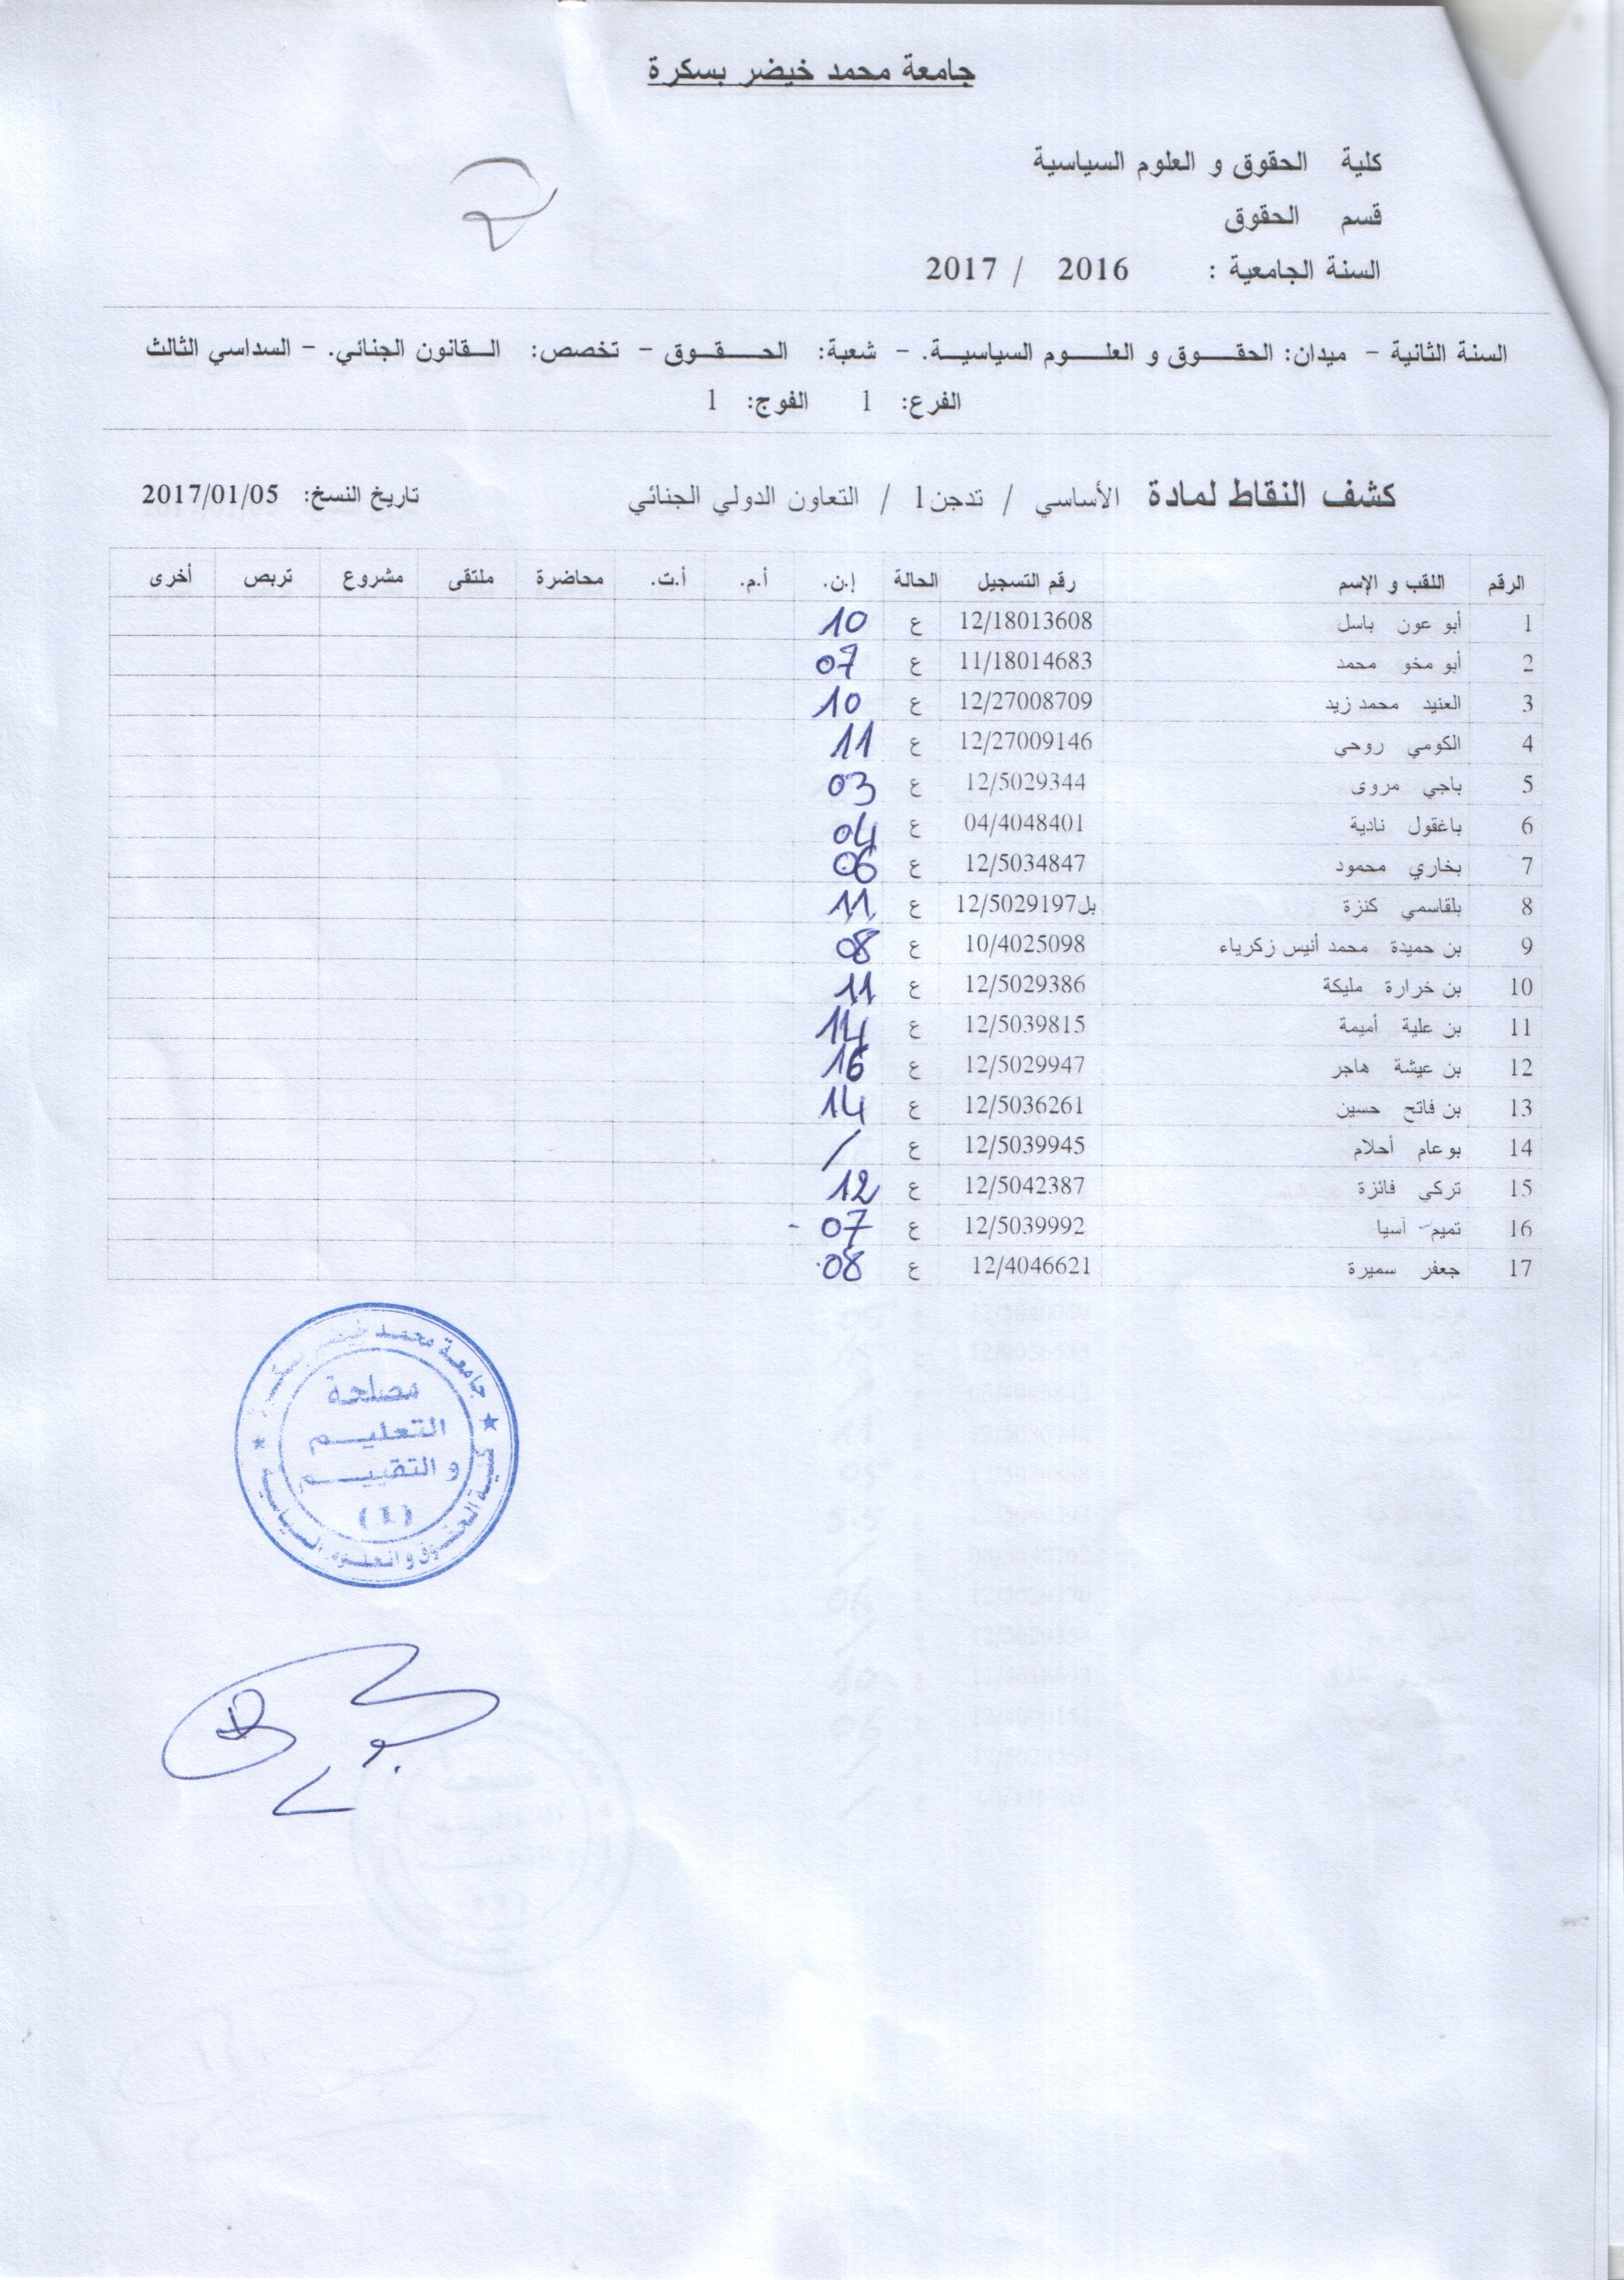 جامعة محمد خيضر بسكرة
كلية الحقوق و العلوم السياسية
قسم الحقوق
السنة الجامعية : 2016 / 2017
السنة الثانية - ميدان: الحقوق و العلوم السياسية. - شعبة: الحقوق - تخصص: القانون الجنائي. - السداسي الثالث
الفرع: 1 الفوج: 1
كشف النقاط لمادة الأساسي / تدجن1 / التعاون الدولي الجنائي تاريخ النسخ: 2017/01/05
الرقم اللقب و الإسم رقم التسجيل الحالة إ.ن. أ.م. أ.ت. محاضرة ملتقى مشروع تربص أخرى
1 أبو عون باسل 12/18013608 ع 10
2 أبو مخو محمد 11/18014683 ع 07
3 العنيد محمد زيد 12/27008709 ع 10
4 الكومي روحي 12/27009146 ع 11
5 باجي مروى 12/5029344 ع 03
6 باغقول نادية 04/4048401 ع 04
7 بخاري محمود 12/5034847 ع 06
8 بلقاسمي كنزة بل12/5029197 ع 11
9 بن حميدة محمد أنيس زكرياء 10/4025098 ع 08
10 بن خرارة مليكة 12/5029386 ع 11
11 بن علية أميمة 12/5039815 ع 14
12 بن عيشة هاجر 12/5029947 ع 16
13 بن فاتح حسين 12/5036261 ع 14
14 بوعام أحلام 12/5039945 ع /
15 تركي فائزة 12/5042387 ع 12
16 تميم آسيا 12/5039992 ع 07
17 جعفر سميرة 12/4046621 ع 08
جامعة محمد خيضر بسكرة
مصلحة
التعليم
والتقييم
(1)
كلية الحقوق والعلوم السياسية